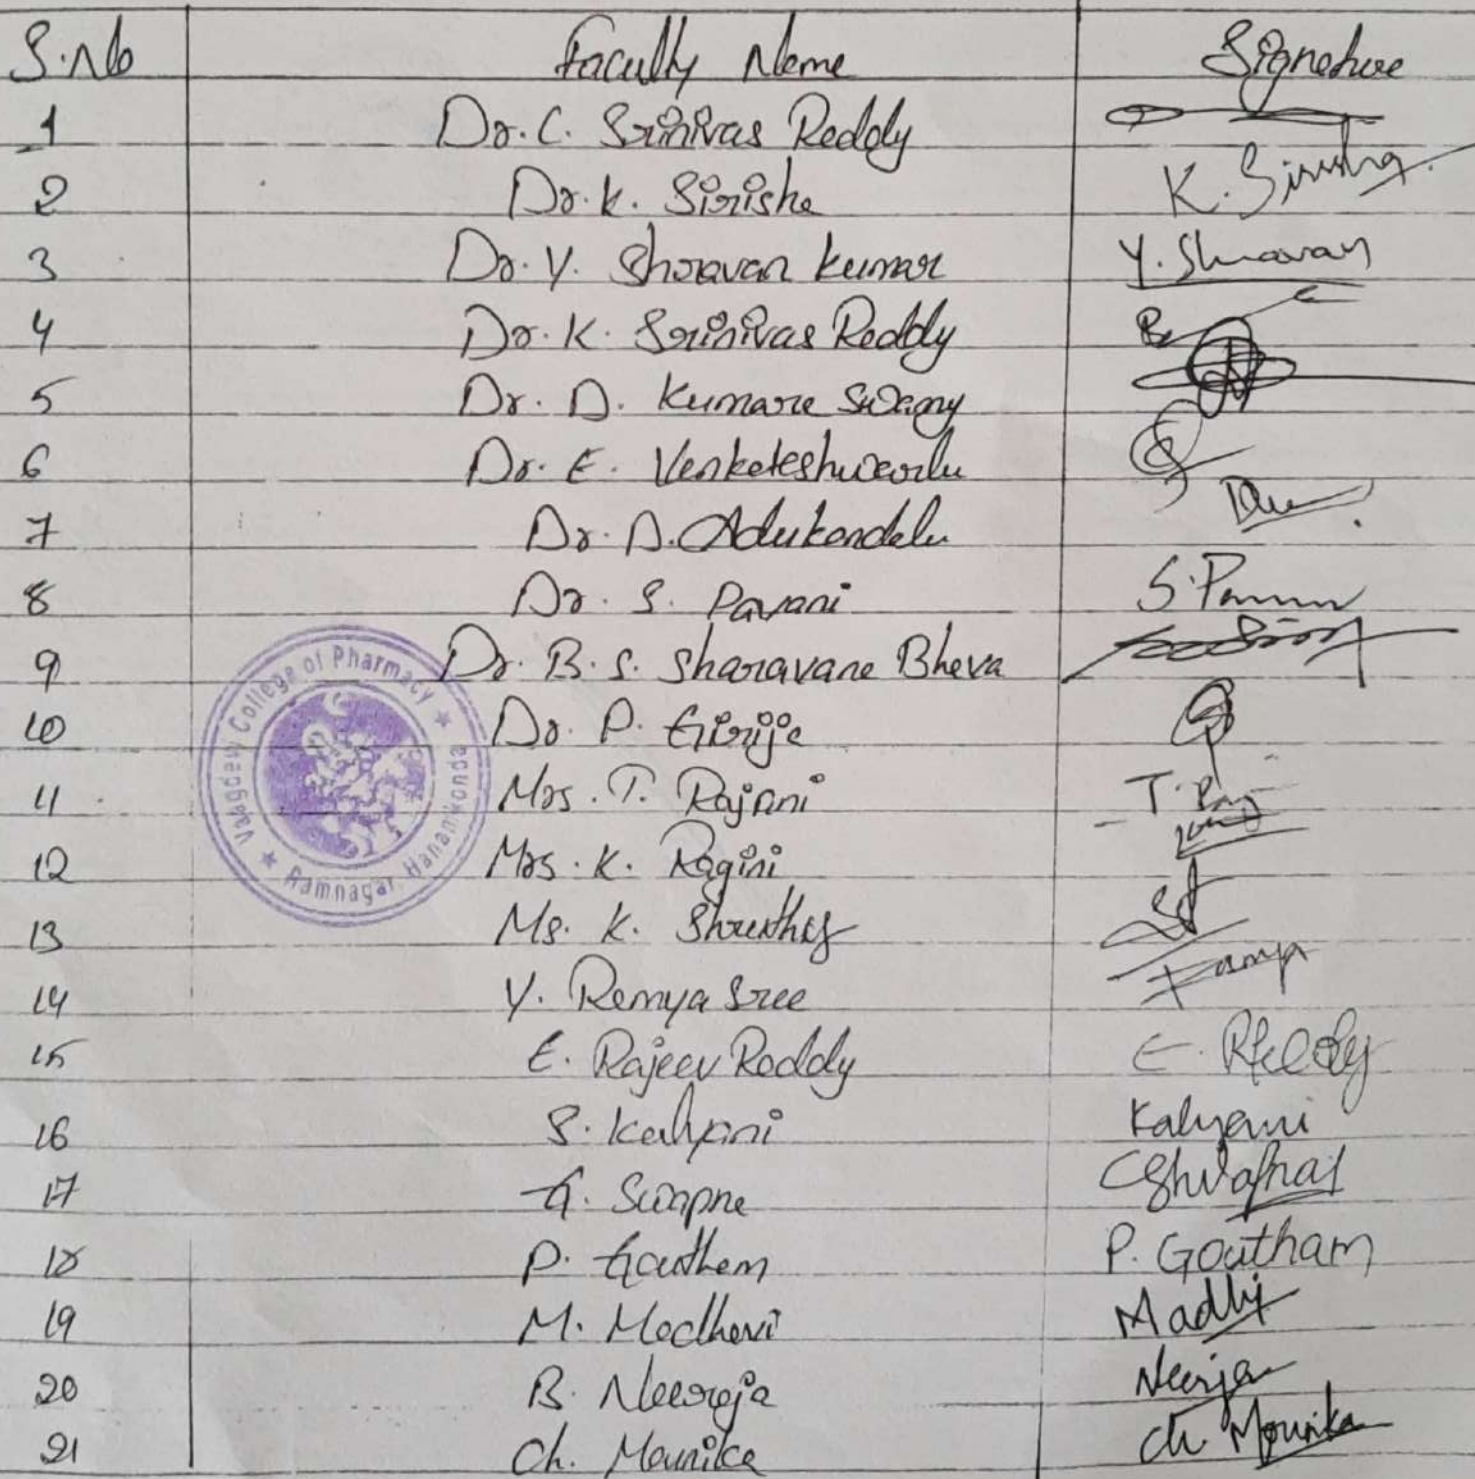 S.No Faculty Name Signature
1 Dr. C. Srinivas Reddy
2 Dr. K. Sirisha K. Sirisha
3 Dr. Y. Shravan Kumar Y. Shravan
4 Dr. K. Srinivas Reddy
5 Dr. D. Kumara Swamy
6 Dr. E. Venkateshwarlu
7 Dr. D. Adukondalu
8 Dr. S. Pavani S. Pavani
9 Dr. B. S. Sharavana Bhava
10 Dr. P. Girija
11 Mrs. T. Rajani
12 Mrs. K. Ragini
13 Ms. K. Shruthy
14 Y. Ramya Sree Ramya
15 E. Rajeev Reddy E. Reddy
16 S. Kalyani Kalyani
17 G. Swapna
18 P. Gautham P. Goutham
19 M. Madhavi Madhvi
20 B. Neeraja Neerja
21 Ch. Mounika Ch. Mounika
Vaagdevi College of Pharmacy ★ Ramnagar Hanamkonda ★